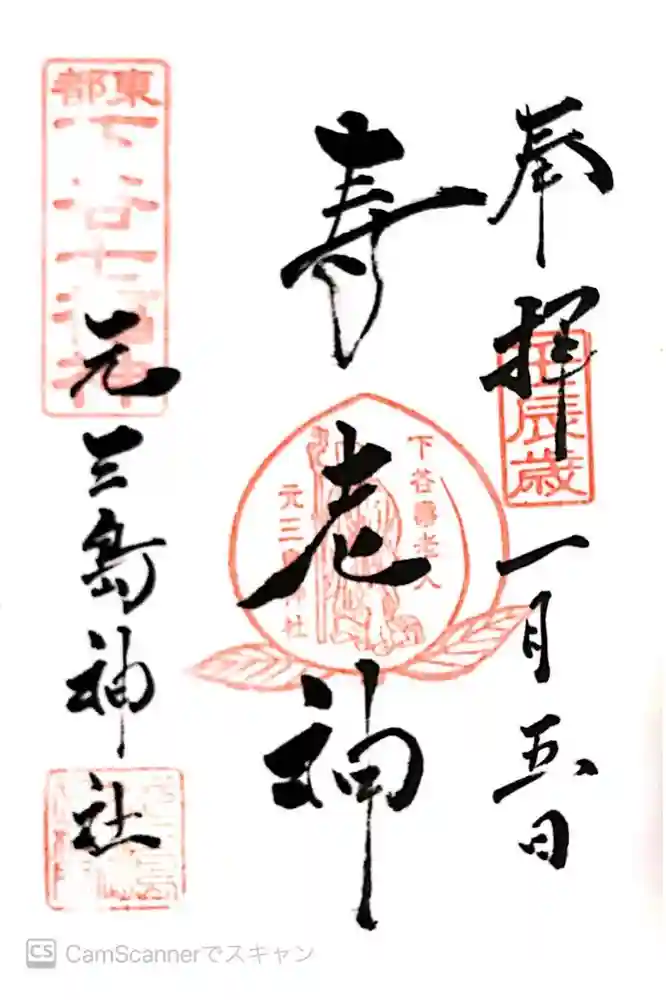 奉拝
壬辰歳
一月五日
寿老神
下谷壽老人
元三島神社
東都
下谷七福神
元三島神社
CS CamScannerでスキャン